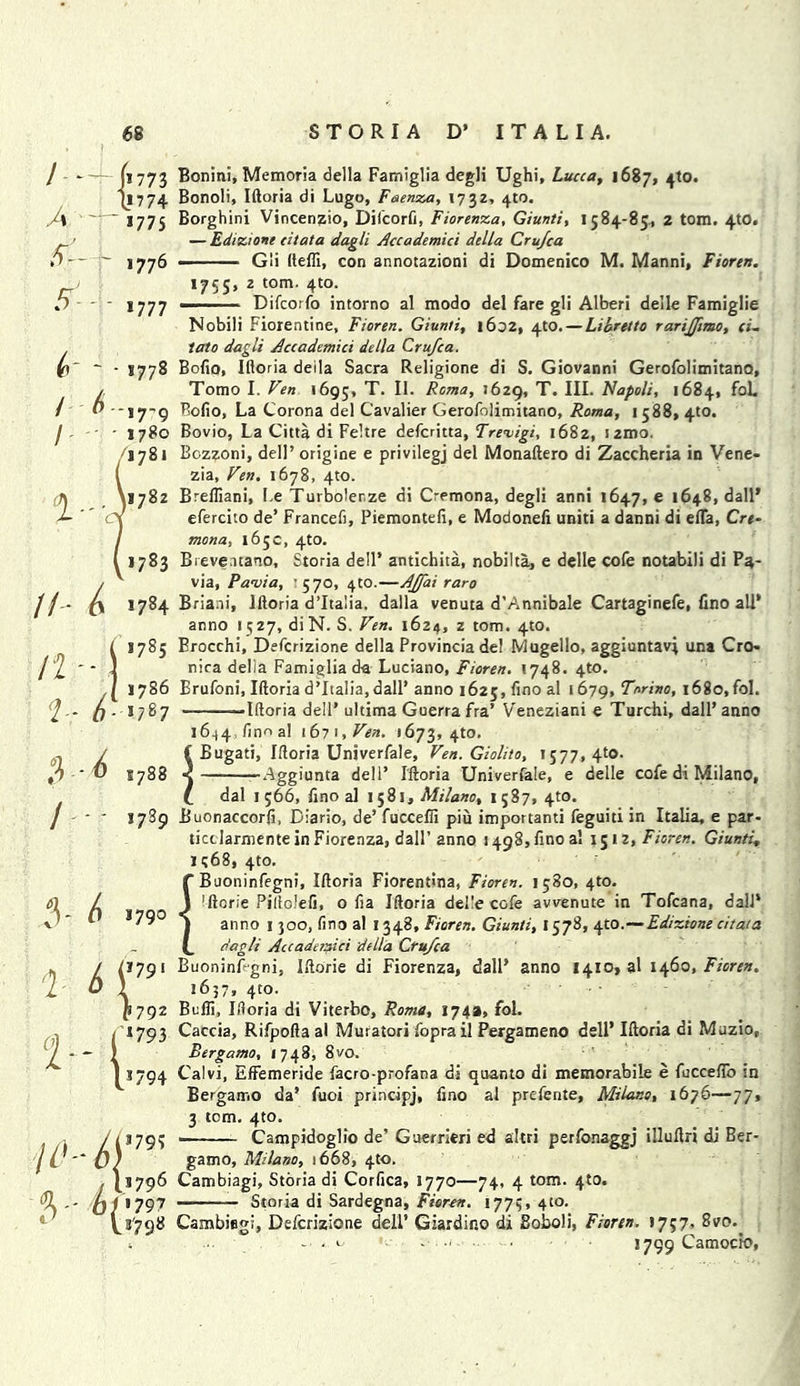 68 STORIA D' ITALIA.
1 - - 1773 Bonini, Memoria della Famiglia degli Ughi, Lucca, 1687, 4to.
1774 Bonoli, Iſtoria di Lugo, Faenza, 1732, 4to.
1775 Borghini Vincenzio, Diſcorſi, Fiorenza, Giunti, 1584-85, 2 tom. 4to.
— Edizione citata dagli Accademici della Cruſca
5 - - 1776 ——— Gli ſteſſi, con annotazioni di Domenico M. Manni, Fioren.
1755, 2 tom. 4to.
5 - - 1777 ——— Diſcorſo intorno al modo del fare gli Alberi delle Famiglie
Nobili Fiorentine, Fioren. Giunti, 1602, 4to.—Libretto rariſſimo, ci-
tato dagli Accademici della Cruſca.
6 - - 1778 Boſio, Iſtoria della Sacra Religione di S. Giovanni Geroſolimitano,
Tomo I. Ven. 1695, T. II. Roma, 1629, T. III. Napoli, 1684, fol.
1 6 - - 17-9 Boſio, La Corona del Cavalier Geroſolimitano, Roma, 1588, 4to.
1 - - 1780 Bovio, La Città di Feltre deſcritta, Trevigi, 1682, 12mo.
1781 Bozzoni, dell' origine e privilegj del Monaſtero di Zaccheria in Vene-
zia, Ven. 1678, 4to.
2 - - 1782 Breſſiani, Le Turbolenze di Cremona, degli anni 1647, e 1648, dall'
eſercito de' Franceſi, Piemonteſi, e Modoneſi uniti a danni di eſſa, Cre-
mona, 1650, 4to.
1783 Breventano, Storia dell' antichità, nobiltà, e delle coſe notabili di Pa-
via, Pavia, 1570, 4to.—Aſſai raro
11 - 6 1784 Briani, Iſtoria d'Italia, dalla venuta d'Annibale Cartagineſe, ſino all'
anno 1527, di N. S. Ven. 1624, 2 tom. 4to.
12 - - 1785 Brocchi, Deſcrizione della Provincia del Mugello, aggiuntavi una Cro-
nica della Famiglia da Luciano, Fioren. 1748. 4to.
1786 Bruſoni, Iſtoria d'Italia, dall' anno 1625, ſino al 1679, Torino, 1680, fol.
2 - 6 - 1787 ———Iſtoria dell' ultima Guerra fra' Veneziani e Turchi, dall' anno
1644, ſino al 1671, Ven. 1673, 4to.
Bugati, Iſtoria Univerſale, Ven. Giolito, 1577, 4to.
3 - 6 1788 ———Aggiunta dell' Iſtoria Univerſale, e delle coſe di Milano,
dal 1566, ſino al 1581, Milano, 1587, 4to.
1 - - 1789 Buonaccorſi, Diario, de' ſucceſſi più importanti ſeguiti in Italia, e par-
ticolarmente in Fiorenza, dall' anno 1498, ſino al 1512, Fioren. Giunti,
1568, 4to.
Buoninſegni, Iſtoria Fiorentina, Fioren. 1580, 4to.
3 - 6 1790 Iſtorie Piſtoleſi, o ſia Iſtoria delle coſe avvenute in Toſcana, dall'
anno 1300, ſino al 1348, Fioren. Giunti, 1578, 4to.—Edizione citata
dagli Accademici della Cruſca
2 6 1791 Buoninſegni, Iſtorie di Fiorenza, dall' anno 1410, al 1460, Fioren.
1637, 4to.
1792 Buſſi, Iſtoria di Viterbo, Roma, 1742, fol.
2 - - 1793 Caccia, Riſpoſta al Muratori ſopra il Pergameno dell' Iſtoria di Muzio,
Bergamo, 1748, 8vo.
1794 Calvi, Effemeride ſacro-profana di quanto di memorabile è ſucceſſo in
Bergamo da' ſuoi principj, ſino al preſente, Milano, 1676—77,
3 tom. 4to.
10 - 6 1795 ——— Campidoglio de' Guerrieri ed altri perſonaggj illuſtri di Ber-
gamo, Milano, 1668, 4to.
1796 Cambiagi, Stòria di Corſica, 1770—74, 4 tom. 4to.
3 - - 6 1797 ——— Storia di Sardegna, Fioren. 1775, 4to.
1798 Cambiagi, Deſcrizione dell' Giardino di Boboli, Fioren. 1757, 8vo.
1799 Camocio,